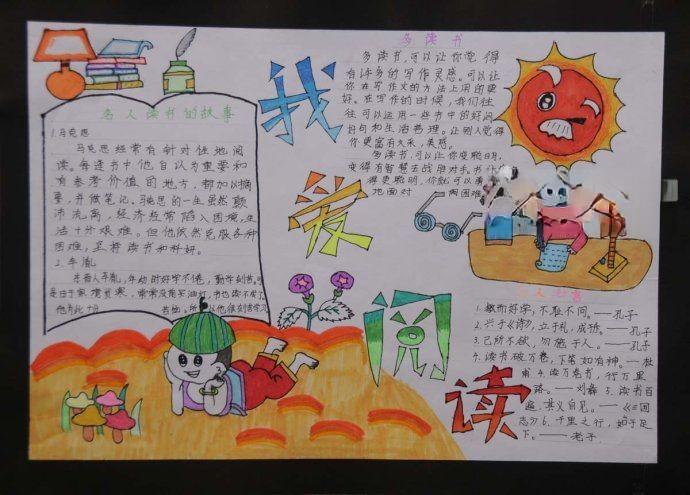 名人读书的故事
1.马克思
马克思经常有针对性地阅
读。每逢书中他自认为重要和
有参考价值的地方，都加以摘
要，并做笔记。马克思的一生虽然颠
沛流离，经济经常陷入困境，生
活十分艰难。但他依然克服各种
困难，坚持读书和科研。
2.车胤
车胤，年幼时好学不倦，勤
由于家境贫寒，常常没
我爱阅读
多读书
多读书，可以让你觉得
有许多的写作灵感。可以让
你在写作文的方法上用的更
好。在写作的时候，我们往
往可以运用一些书中的好词
好句和生活哲理。让别人觉得
你更富有文采，美感。
多读书，可以让你变聪明，
变得有智慧去战胜对手。书
得更聪明，你就可以勇
地面对 困难
1.敏而好学，不耻下问。——孔子
2.兴于《诗》，立于礼，成于乐。——孔子
3.己所不欲，勿施于人。——孔子
4.读书破万卷，下笔如有神。——杜
甫 4.读万卷书，行万里
路。——刘彝 5.读书百
遍，其义自见。——《三国
志》 6.千里之行，始于足
下。——老子